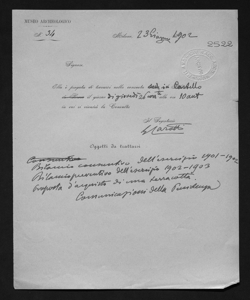 MUSEO ARCHEOLOGICO
N. 34
Milano, 23 Giugno 1902
2522
Signore,
Ella è pregata di trovarsi nella
in Castello
di giovedì 26 10 ant
in cui si riunirà la Consulta
Il Segretario
Oggetti da trattarsi
Consuntivo
Bilancio consuntivo dell'esercizio 1901-1902
Bilancio preventivo dell'esercizio 1902-1903
Proposta d'acquisto di una terracotta
Comunicazioni della Presidenza